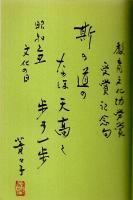 教育文化功労賞
受賞記念句
斯の道の
なほ天高く
一歩
昭和
文化の日
子